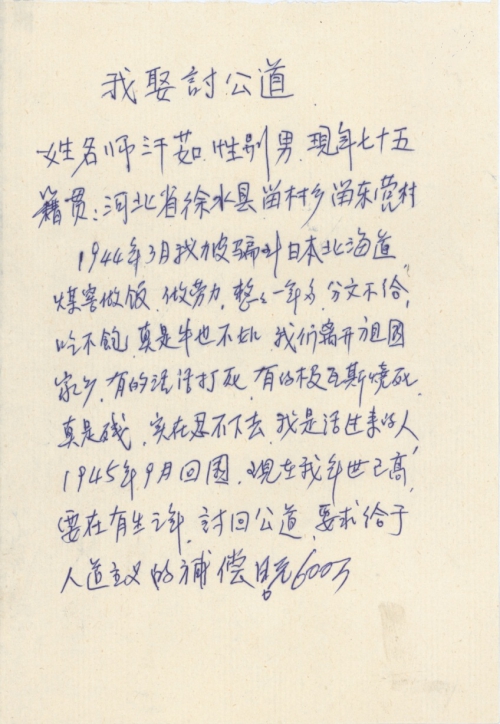 我娶討公道
姓名师汗茹.性别男.现年七十五
籍贯:河北省徐水县留村乡留东营村
1944年3月我被骗到日本北海道
煤窑做饭.做劳力.整整一年多分文不给,
吃不饱.真是牛也不如.我们离开祖国
家乡.有的活活打死.有的被瓦斯烧死.
真是残.实在忍不下去.我是活过来的人
1945年9月回国.现在我年世已高,
要在有生之年.討回公道.要求给于
人道主义的補偿日元600万